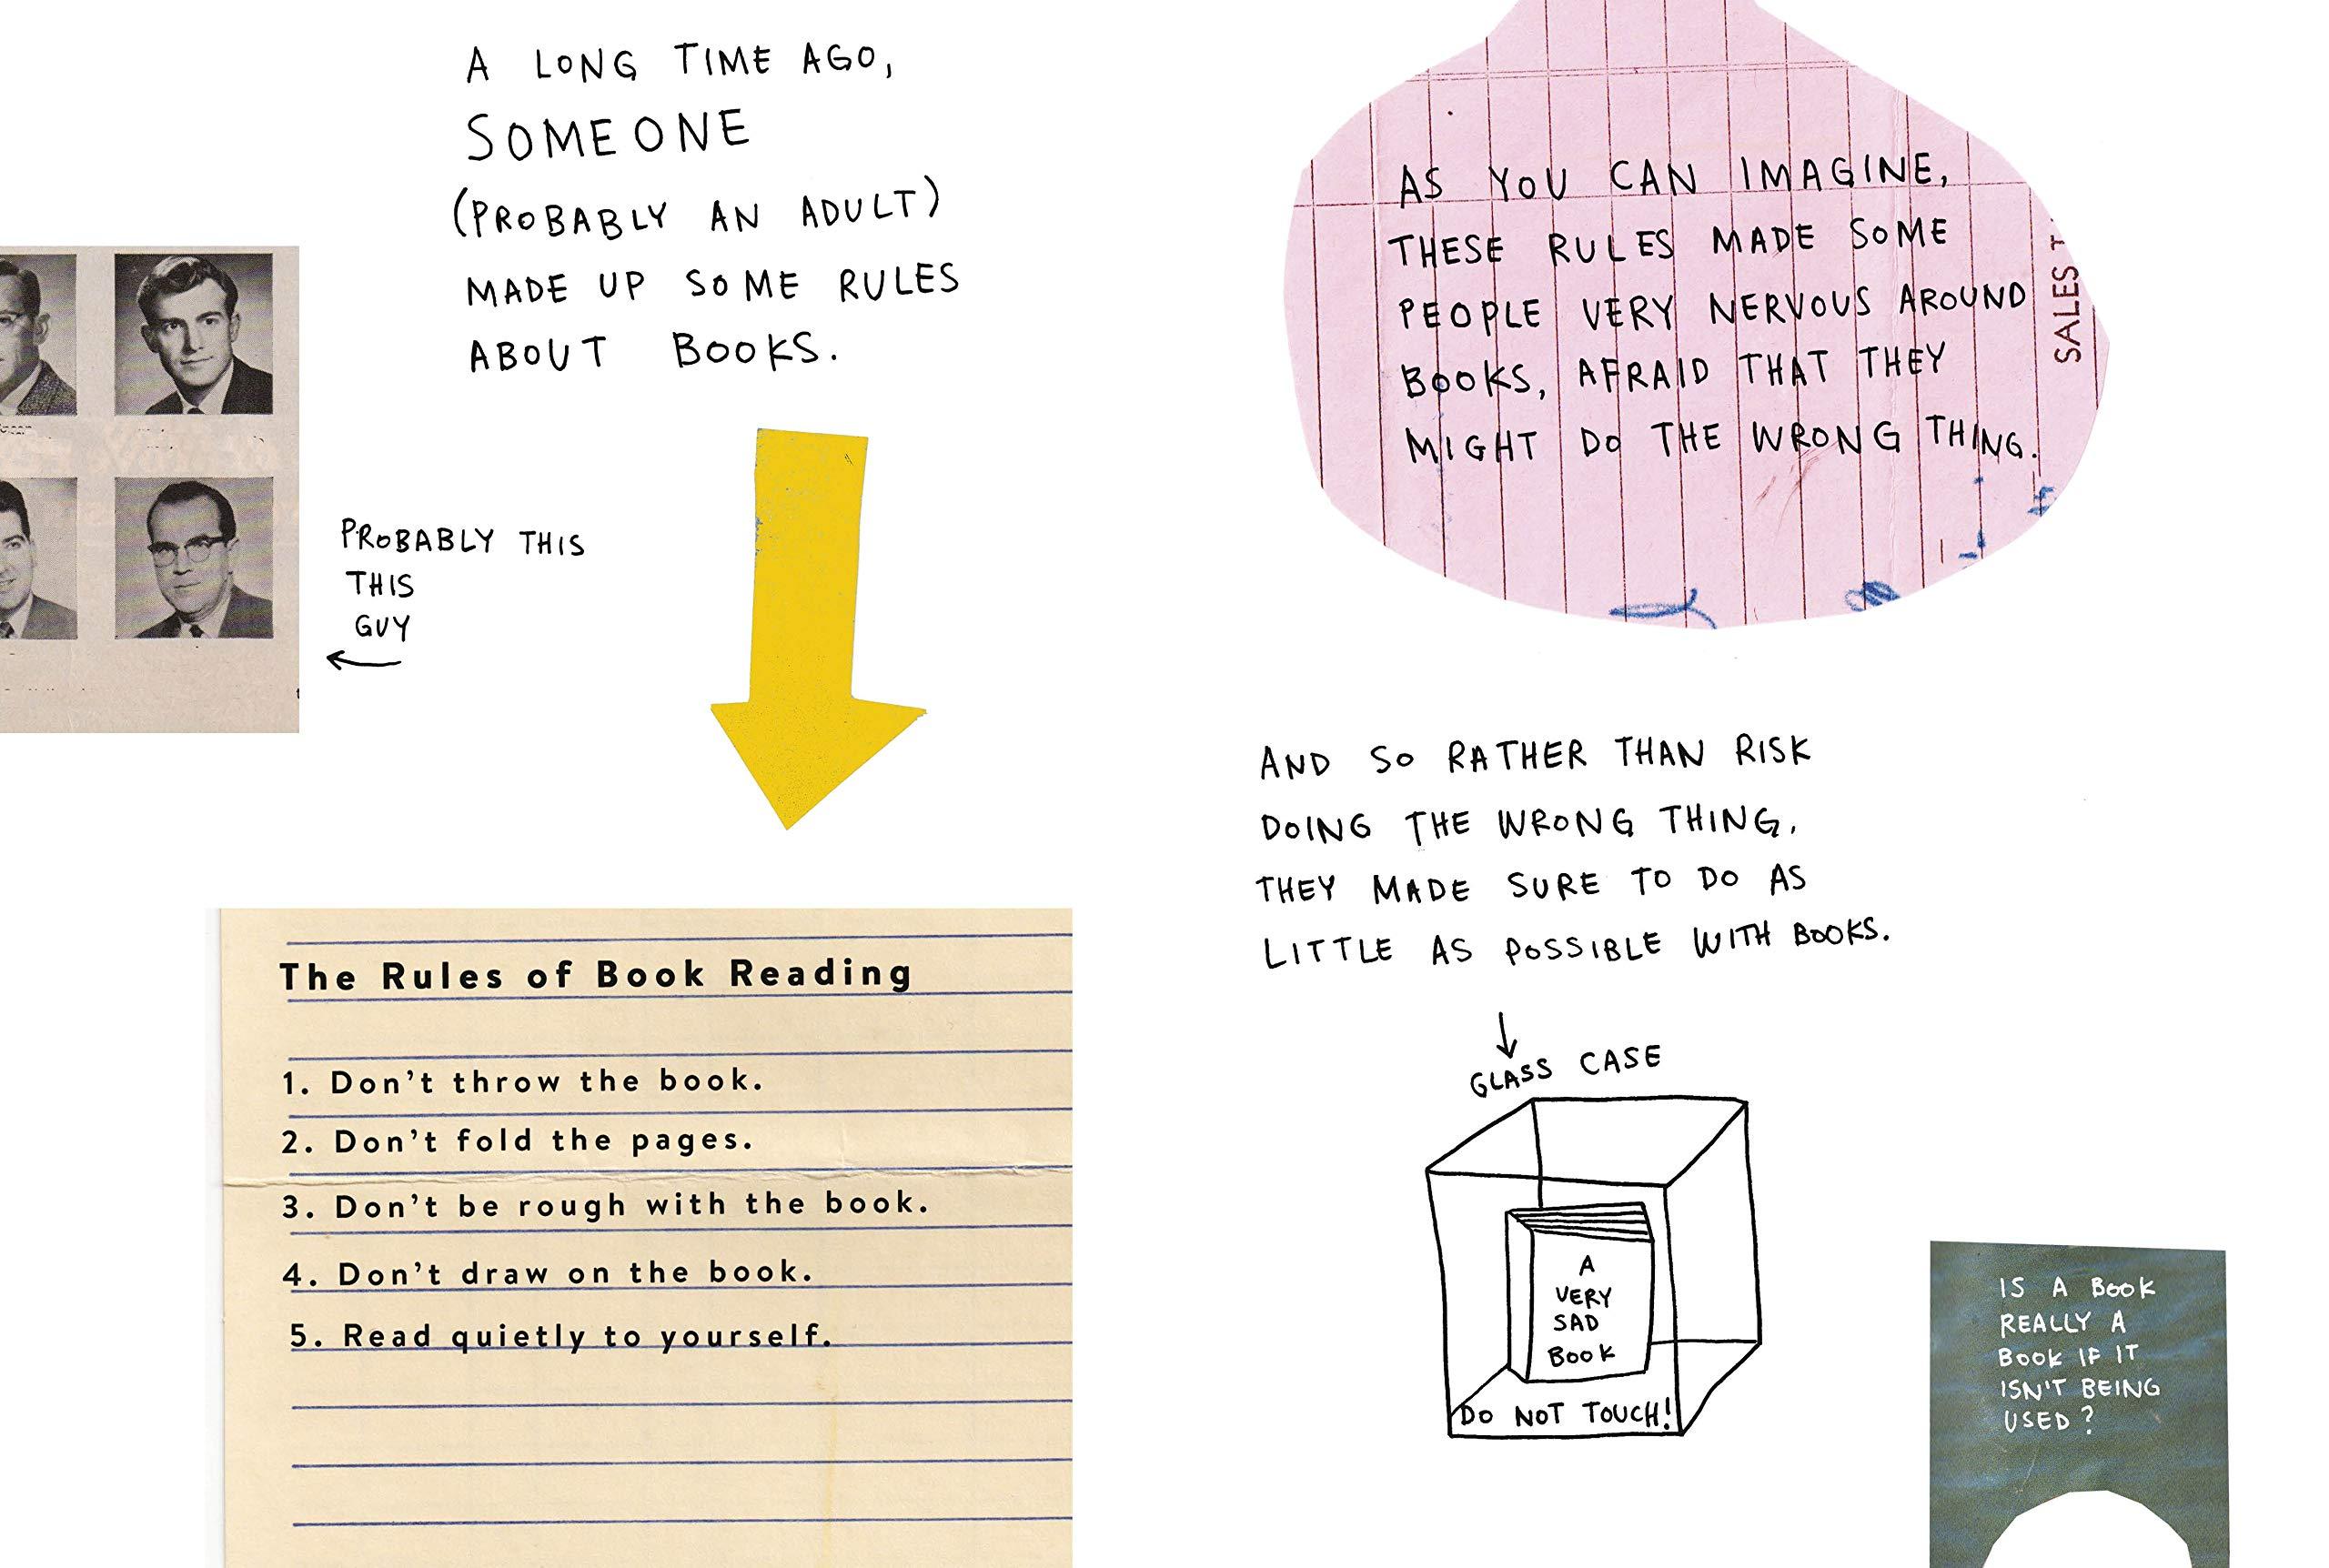 A LONG TIME AGO,
SOMEONE
(PROBABLY AN ADULT)
MADE UP SOME RULES
ABOUT BOOKS.
PROBABLY THIS
THIS
GUY
The Rules of Book Reading
1. Don't throw the book.
2. Don't fold the pages.
3. Don't be rough with the book.
4. Don't draw on the book.
5. Read quietly to yourself.
AS YOU CAN IMAGINE,
THESE RULES MADE SOME
PEOPLE VERY NERVOUS AROUND
BOOKS, AFRAID THAT THEY
MIGHT DO THE WRONG THING.
SALES T
AND SO RATHER THAN RISK
DOING THE WRONG THING,
THEY MADE SURE TO DO AS
LITTLE AS POSSIBLE WITH BOOKS.
GLASS CASE
A
VERY
SAD
BOOK
DO NOT TOUCH!
IS A BOOK
REALLY A
BOOK IF IT
ISN'T BEING
USED?